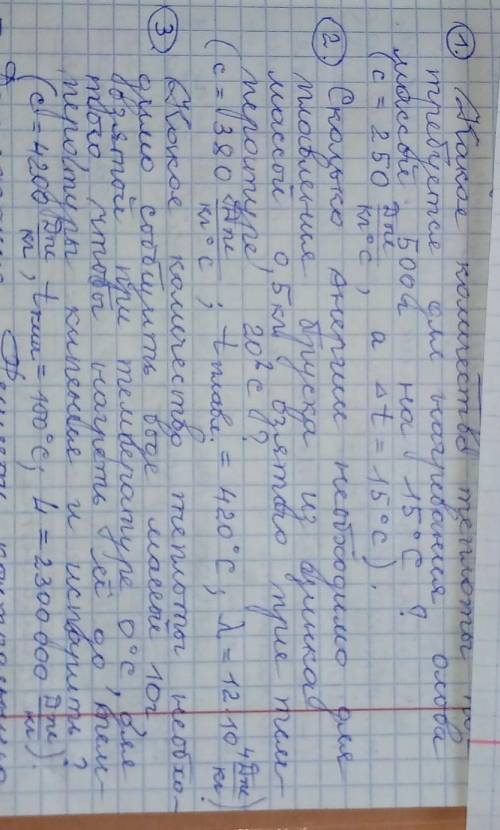 1. Какое количество теплоты по-
требуется для нагревания олова
массой 500г на 15°C ?
(c = 250 Дж/кг°C, а Δt = 15°C).
2. Сколько энергии необходимо для
плавления бруска из цинка
массой 0,5кг взятого при тем-
пературе 20°C ?
(c = 380 Дж/кг°C ; t плавл. = 420°C ; λ = 12·10⁴ Дж/кг)
3. Какое количество теплоты необхо-
димо сообщить воде массой 10г
взятой при температуре 0°C, для
того чтобы нагреть её до тем-
пературы кипения и испарить ?
(c = 4200 Дж/кг, t кип = 100°C, L = 2300 000 Дж/кг).